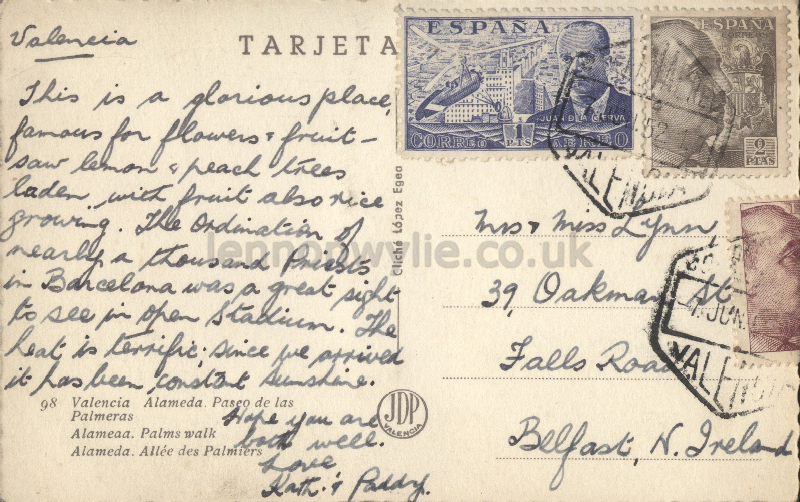 Valencia
TARJETA
This is a glorious place,
famous for flowers & fruit -
saw lemon & peach trees
laden with fruit also rice
growing. The Ordination of
nearly a thousand Priests
in Barcelona was a great sight
to see in open Stadium. The
heat is terrific; since we arrived
it has been constant sunshine.
Hope you are
both well.
Love
Kath. & Paddy.
98 Valencia Alameda. Paseo de las
Palmeras
Alameaa. Palms walk
Alameda. Allée des Palmiers
JDP
VALENCIA
Cliché López Egea
ESPAÑA
JUAN DE LA CIERVA
CORREO 1 PTS AEREO
ESPAÑA
CORREOS
2
PTAS
VALENCIA
Mrs & Miss Lynn
39, Oakman St
Falls Road
Belfast, N. Ireland
JUN
VALENCIA
lennonwylie.co.uk